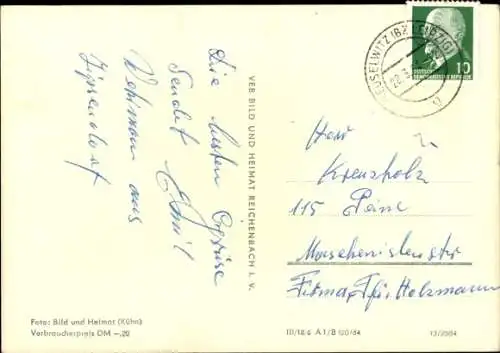 Die besten Grüße
Sendet Emil
Wehlmann aus
Zipsendorf
VEB BILD UND HEIMAT REICHENBACH I. V.
Foto: Bild und Heimat (Kühn)
Verbraucherpreis DM —,20
MEUSELWITZ (BZ LEIPZIG)
10
DEUTSCHE
DEMOKRATISCHE REPUBLIK
Herr
Kreuzholz
115 Peine
Firma
Holzmann
III/18/6 A 1/B 120/64
13/2084